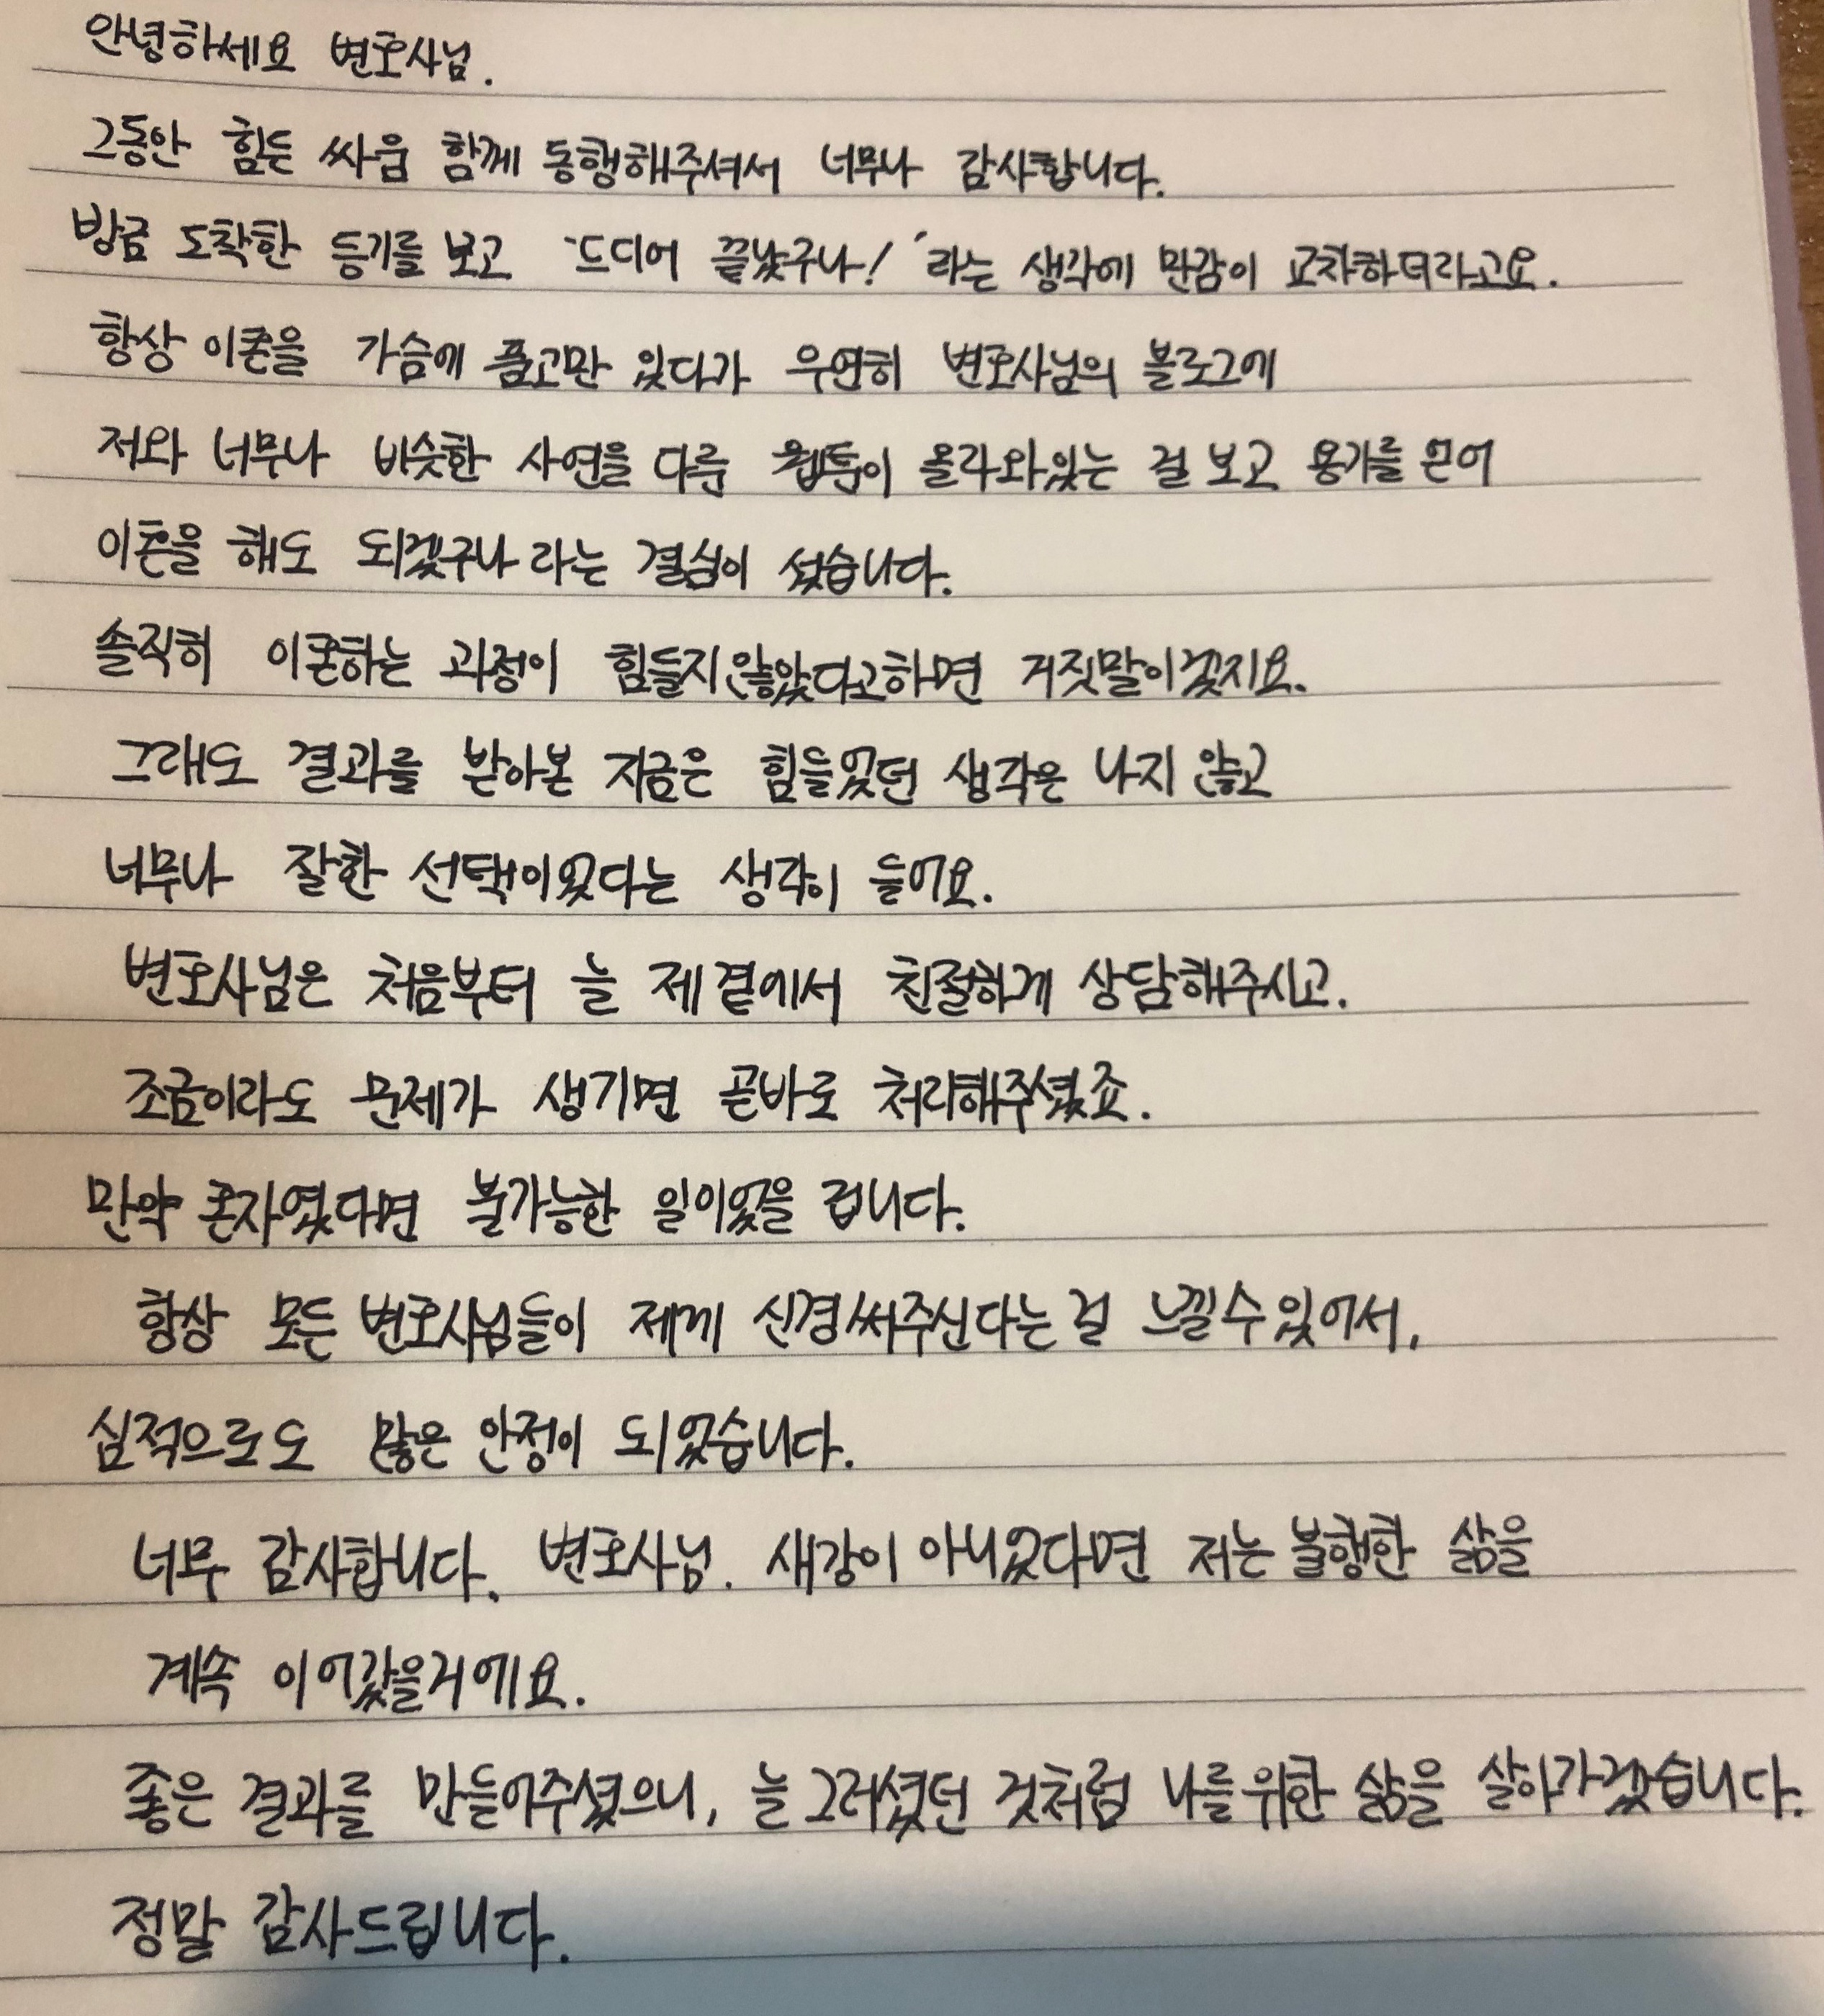 안녕하세요 변호사님.
그동안 힘든 싸움 함께 동행해주셔서 너무나 감사합니다.
방금 도착한 등기를 보고 '드디어 끝났구나!' 라는 생각에 만감이 교차하더라고요.
항상 이혼을 가슴에 품고만 있다가 우연히 변호사님의 블로그에
저와 너무나 비슷한 사연을 다룬 웹툰이 올라와있는 걸 보고 용기를 얻어
이혼을 해도 되겠구나 라는 결심이 섰습니다.
솔직히 이혼하는 과정이 힘들지않았다고하면 거짓말이겠지요.
그래도 결과를 받아본 지금은 힘들었던 생각은 나지 않고
너무나 잘한 선택이었다는 생각이 들어요.
변호사님은 처음부터 늘 제 곁에서 친절하게 상담해주시고.
조금이라도 문제가 생기면 곧바로 처리해주셨죠.
만약 혼자였다면 불가능한 일이었을 겁니다.
항상 모든 변호사님들이 제게 신경써주신다는 걸 느낄수있어서,
심적으로도 많은 안정이 되었습니다.
너무 감사합니다. 변호사님. 새강이 아니었다면 저는 불행한 삶을
계속 이어갔을거에요.
좋은 결과를 만들어주셨으니, 늘 그러셨던 것처럼 나를위한 삶을 살아가겠습니다.
정말 감사드립니다.